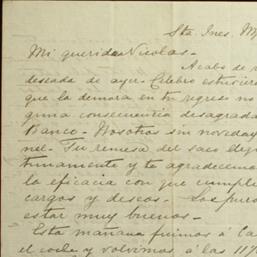 Sta Ines. M
Mi querido Nicolas.-
Acabo de r
deseada de ayer. Celebro
que la demora en tu regreso no
guna consecuencia desagrada
Banco - Nosotros sin noveday
nel - Tu remesa del saco lleg
tunamente y te agradecemos
la eficacia con que cumple
cargos y deseos. Los puros
estar muy buenos -
Esta mañana fuimos á Ca
el coche y volvimos, á las 11½